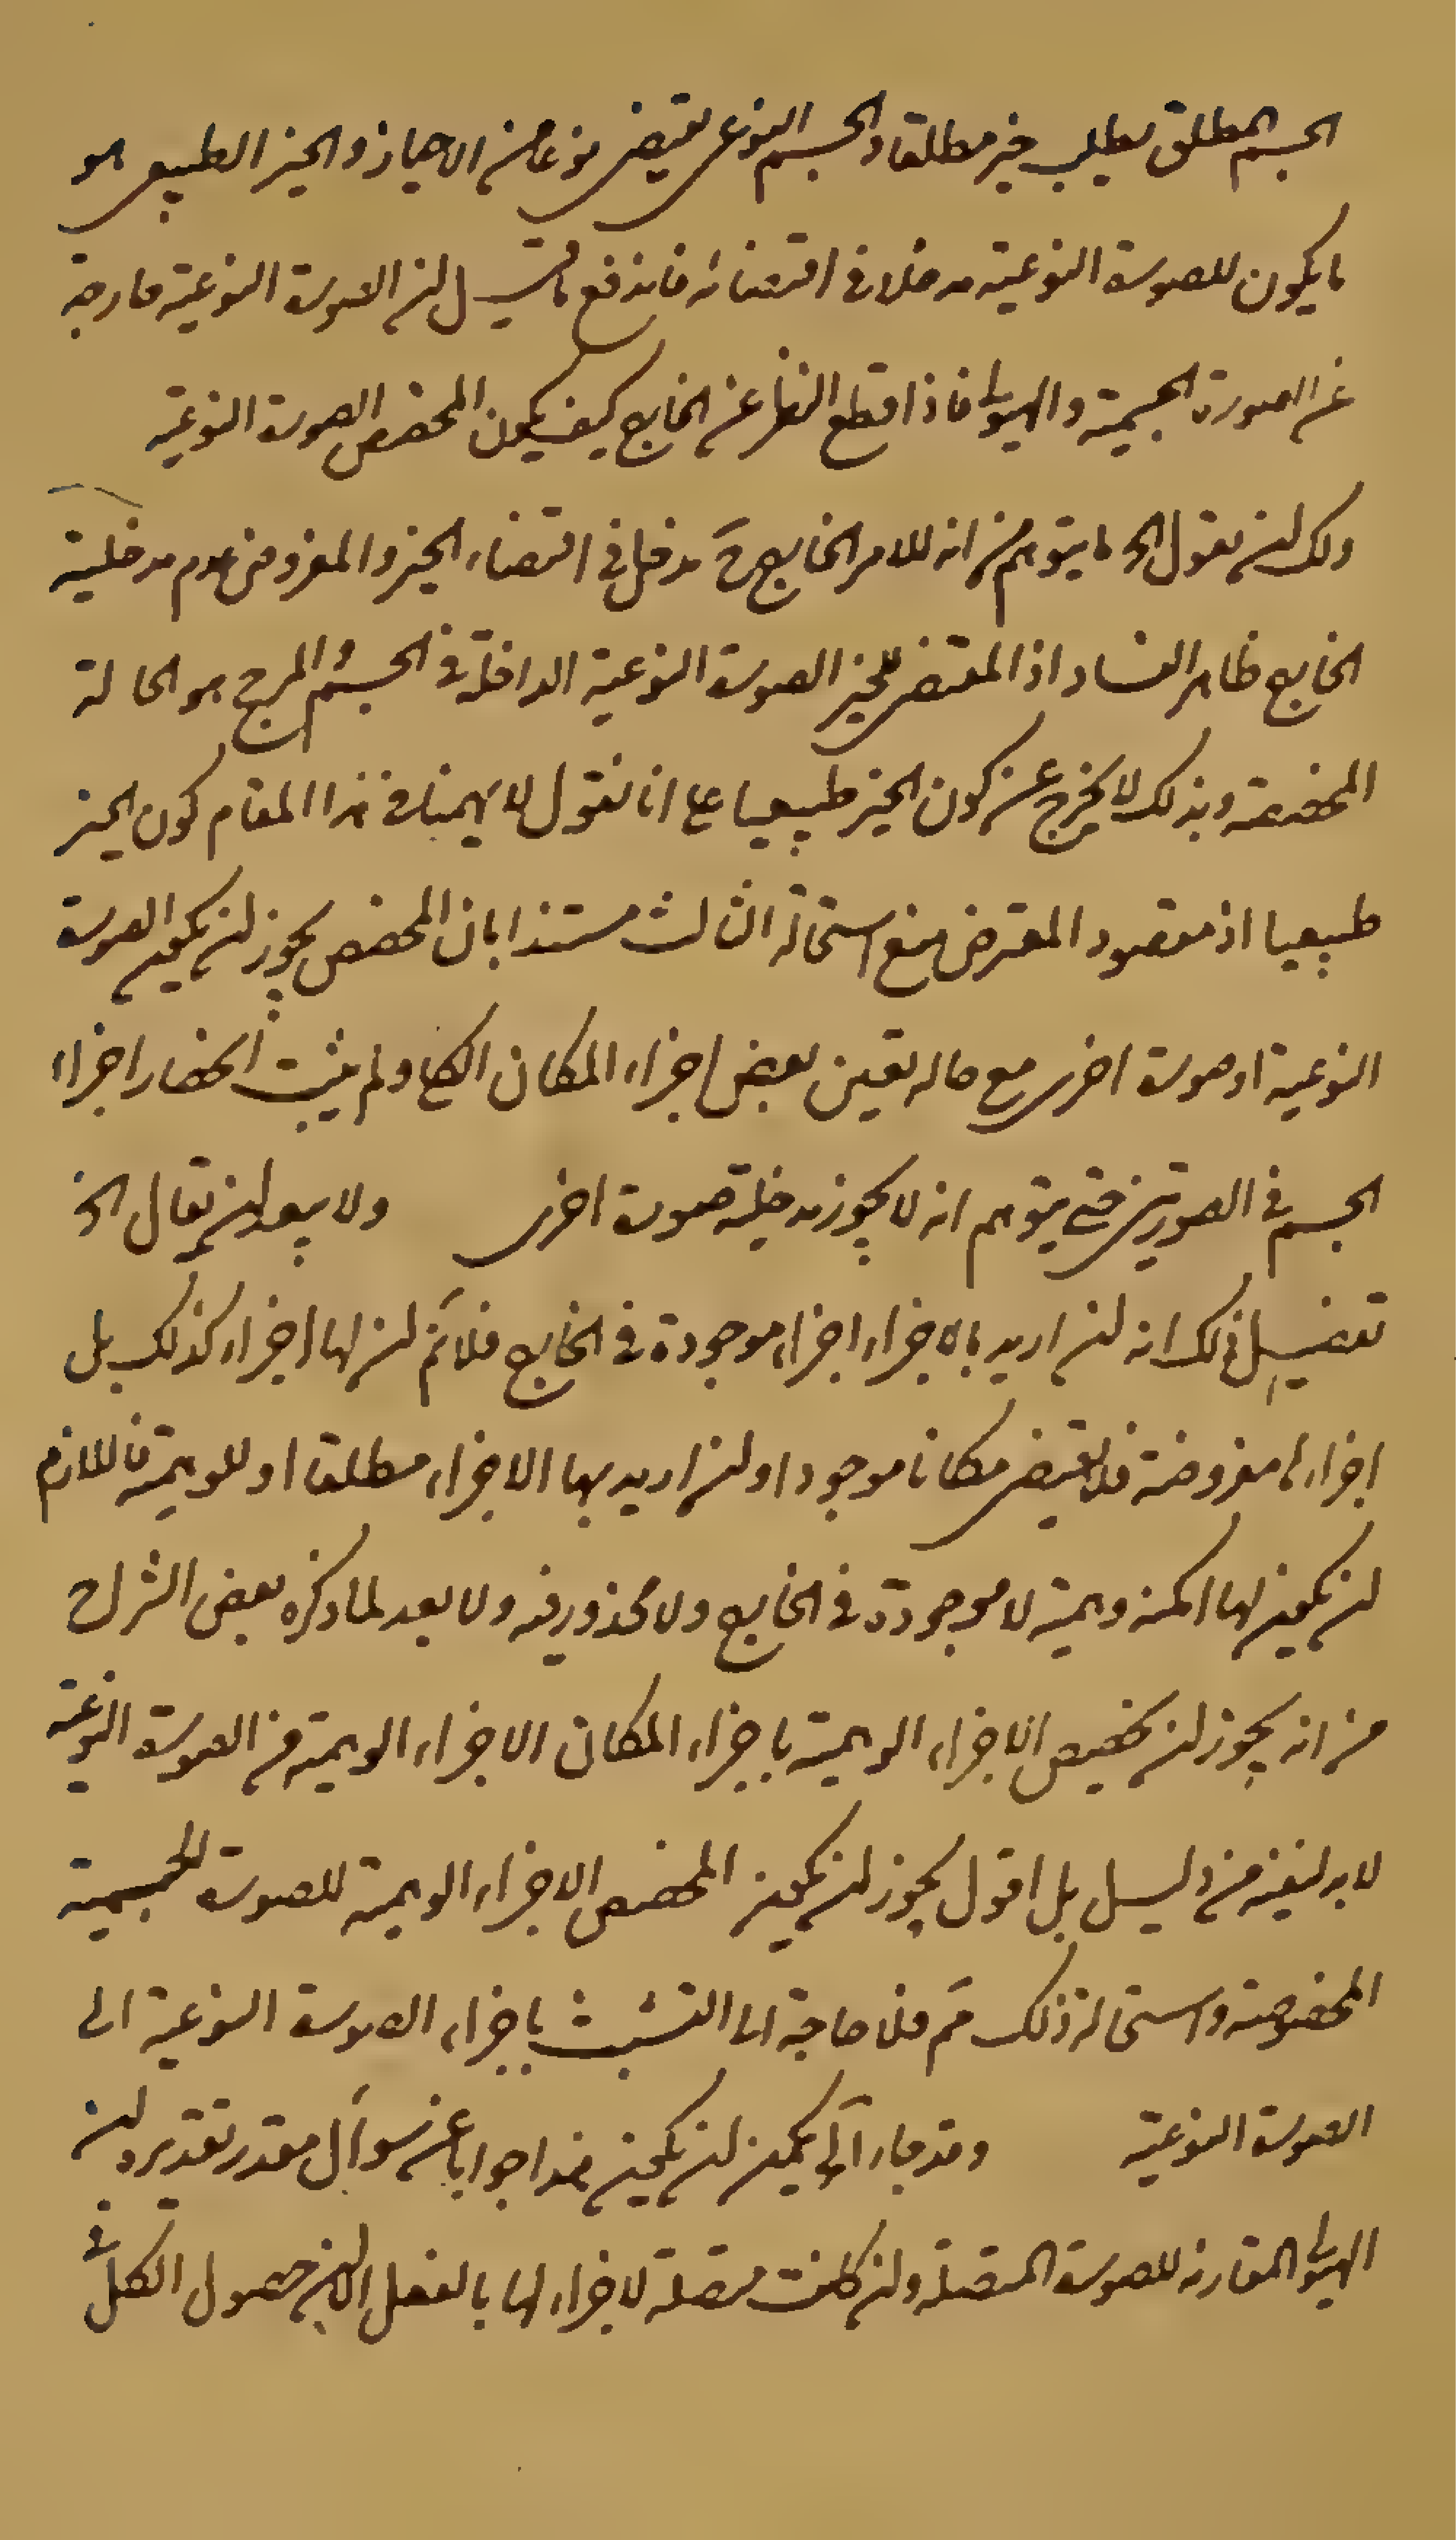 الجسم المطلق يطلب حيز مطلقا والجسم النوعى يقتضى نوعا من الاحياز والحيز الطبيعى هو
ما يكون للصورة النوعية مدخلا فى اقتضائه فاندفع ما قيل ان الصورة النوعية خارجة
عن الصورة الجسمية والهيولى فاذا قطع النظر عن الخارج كيف يكون المخصص الصورة النوعية
ولك ان تقول الخ ما يتوهم من انه للامر الخارج ح مدخل فى اقتضاء الحيز والمفروض عدم مدخلية
الخارج ظاهر الفساد اذ المقتضى للحيز الصورة النوعية الداخلة فى الجسم والمرجح هو الحالة
المخصصة وبذلك لا يخرج عن كون الحيز طبيعيا على انا نقول لا يهمنا فى هذا المقام كون الحيز
طبيعيا اذ مقصود المعترض منع استحالة الثالث مستندا بان المخصص يجوز ان يكون الصورة
النوعية او صورة اخرى مع حاله تعين بعض اجزاء المكان الكلى ولم يثبت انحصار اجزاء
الجسم فى الصورتين حتى يتوهم انه لا يجوز مدخلية صورة اخرى ولا يبعد ان يقال الخ
تفصيل ذلك انه ان اريد بالاجزاء اجزاء موجودة فى الخارج فلا نم ان لها اجزاء كذلك بل
اجزاءها مفروضة فلا يقتضى مكانا موجودا وان اريد بها الاجزاء مطلقا او الوهمية فاللازم
ان يكون لها امكنة وهمية لا موجودة فى الخارج ولا محذور فيه ولا بعد لما ذكره بعض الشراح
من انه يجوز ان تخصيص الاجزاء الوهمية باجزاء المكان الاجزاء الوهمية من الصورة النوعية
لا بد لنفيه من دليل بل اقول يجوز ان يكون المخصص الاجزاء الوهمية للصورة الجسمية
المخصوصة واستحالة ذلك مم فلا حاجة الى التشبث باجزاء الصورة النوعية الى
الصورة النوعية وقد جاب الى يمكن ان يكون هذا جوابا عن سوآل مقدر تقديره ان
الهيولى المقارنة للصورة المتصلة وان كانت متصلة لا اجزاء لها بالفعل الا ان حصول الكل فى